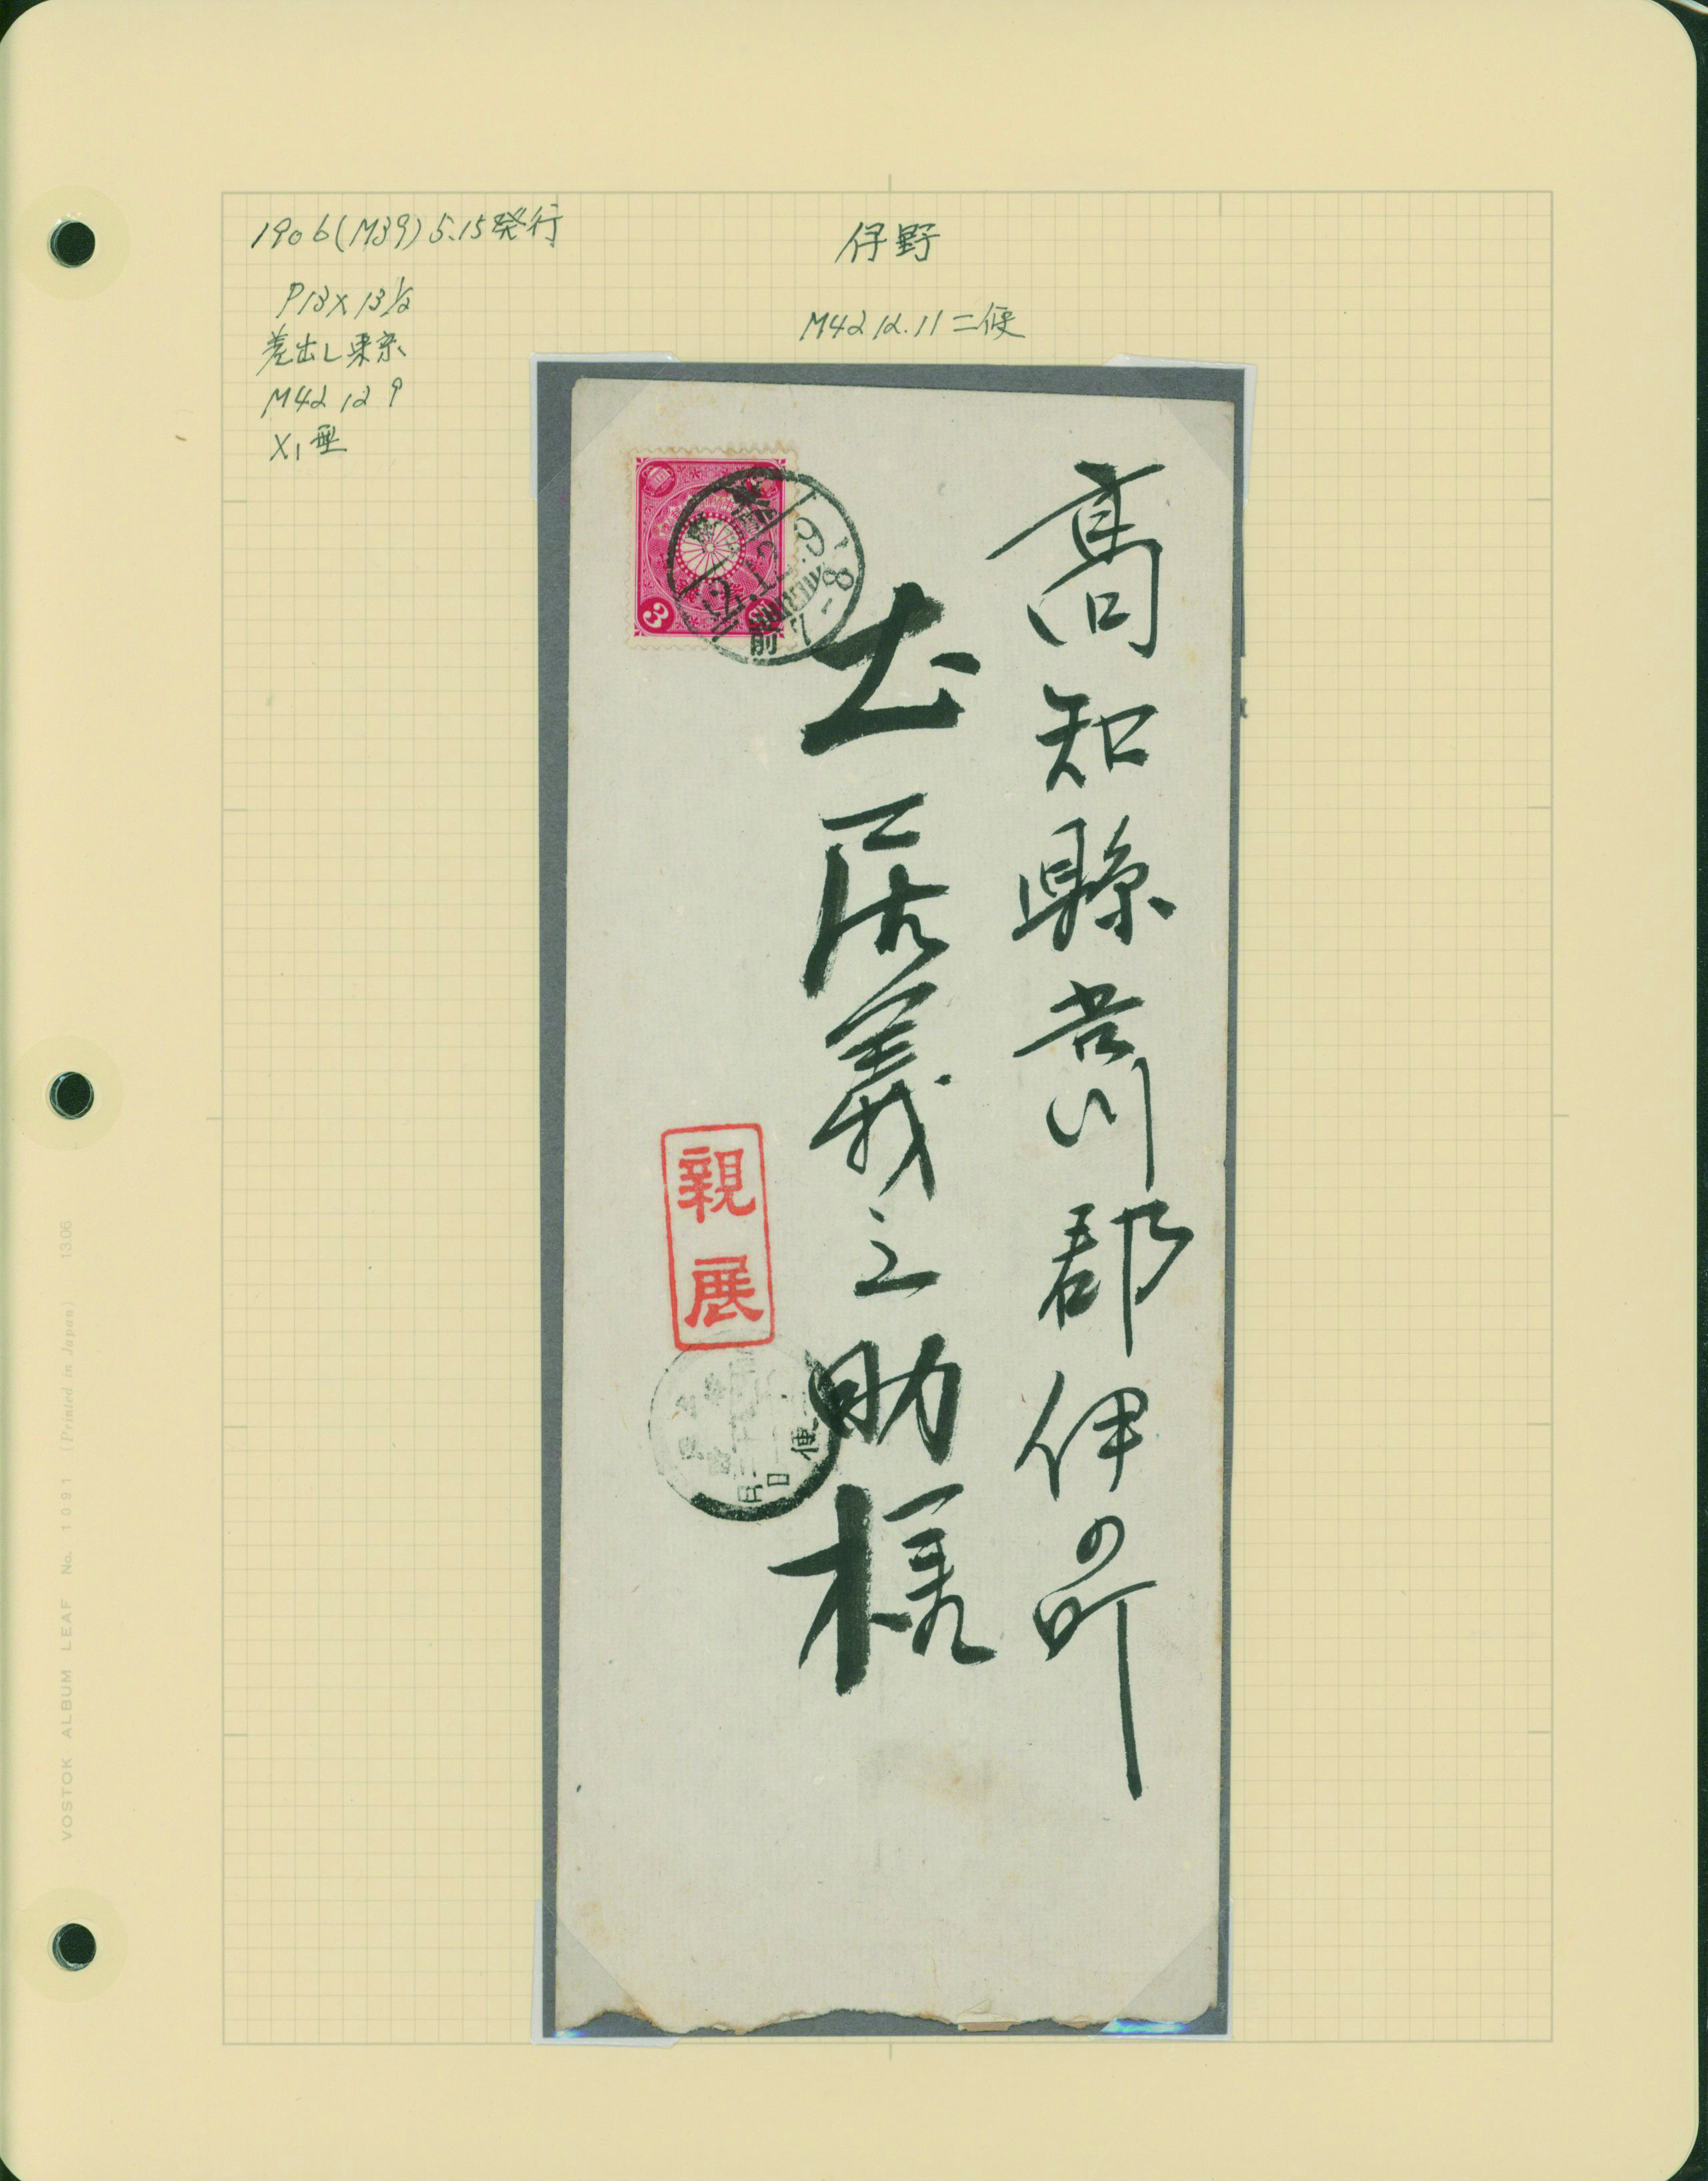 1906(M39)5.15発行
P13×13½
差出し東京
M42 12 9
X₁型
伊野
M42 12.11 二便
高知縣吾川郡伊の町
土居義之助様
親展
3
42.12.9
前7-8
便
月
日
VOSTOK ALBUM LEAF No. 1091 (Printed in Japan) 1306